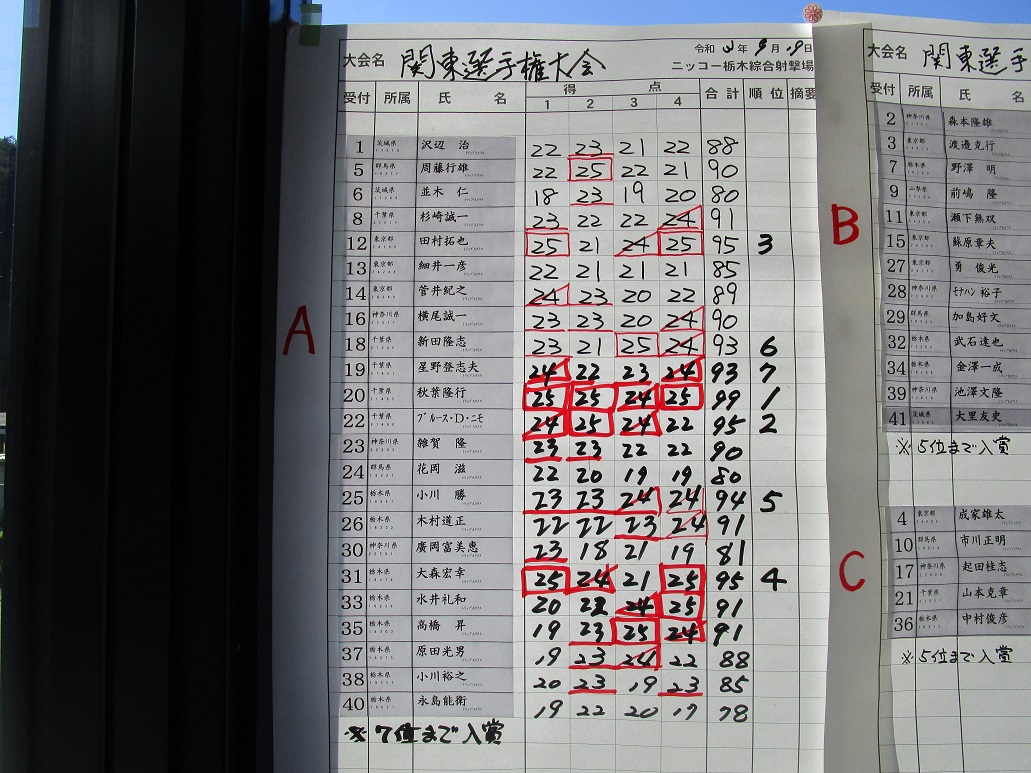 大会名 関東選手権大会 令和 年 9月 日
ニッコー栃木綜合射撃場
受付 所属 氏 名 得 点 合計 順位 摘要
1 2 3 4
1 茨城県 沢辺 治 22 23 21 22 88
5 群馬県 周藤行雄 22 25 22 21 90
6 茨城県 並木 仁 18 23 19 20 80
8 千葉県 杉崎誠一 23 22 22 24 91
12 東京都 田村拓也 25 21 24 25 95 3
13 東京都 細井一彦 22 21 21 21 85
14 東京都 菅井紀之 24 23 20 22 89
16 神奈川県 横尾誠一 23 23 20 24 90
18 千葉県 新田隆志 23 21 25 24 93 6
19 千葉県 星野登志夫 24 22 23 24 93 7
20 千葉県 秋葉隆行 25 25 24 25 99 1
22 千葉県 ブルース・D・ニモ 24 25 24 22 95 2
23 神奈川県 雑賀 隆 23 23 22 22 90
24 群馬県 花岡 滋 22 20 19 19 80
25 栃木県 小川 勝 23 23 24 24 94 5
26 栃木県 木村道正 22 22 23 24 91
30 神奈川県 廣岡富美恵 23 18 21 19 81
31 栃木県 大森宏幸 25 24 21 25 95 4
33 栃木県 水井礼和 20 22 24 25 91
35 栃木県 高橋 昇 19 23 25 24 91
37 栃木県 原田光男 19 23 24 22 88
38 栃木県 小川裕之 20 23 19 23 85
40 栃木県 永島能衛 19 22 20 17 78
※ 7位まで入賞
A
大会名 関東選手
受付 所属 氏
2 神奈川県 森本隆雄
3 東京都 渡邉克行
7 栃木県 野澤 明
9 山梨県 前嶋 隆
11 東京都 瀬下無双
15 東京都 蘇原章夫
27 東京都 勇 俊光
28 神奈川県 モナハン裕子
29 群馬県 加島好文
32 栃木県 武石達也
34 栃木県 金澤一成
39 神奈川県 池澤文隆
41 茨城県 大里友史
※5位まで入賞
B
4 東京都 成家雄太
10 群馬県 市川正明
17 神奈川県 起田桂志
21 千葉県 山本克章
36 栃木県 中村俊彦
※5位まで入賞
C